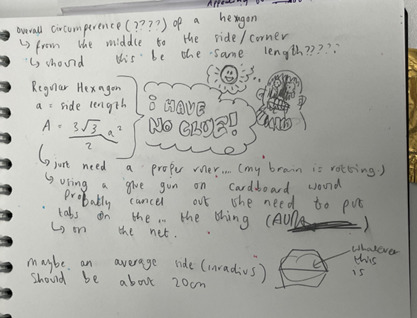 overall circumference (????) of a hexagon
↳ from the middle to the side/corner
↳ should this be the same length?????
Regular Hexagon
a = side length
A = 3√3/2 a²
i HAVE
NO CLUE!
↳ just need a proper ruler... (my brain is rotting)
↳ using a glue gun on cardboard would
probably cancel out the need to put
tabs on the ... the thing
↳ on the net.
maybe an average side (inradius)
should be about 20cm
whatever
this
is